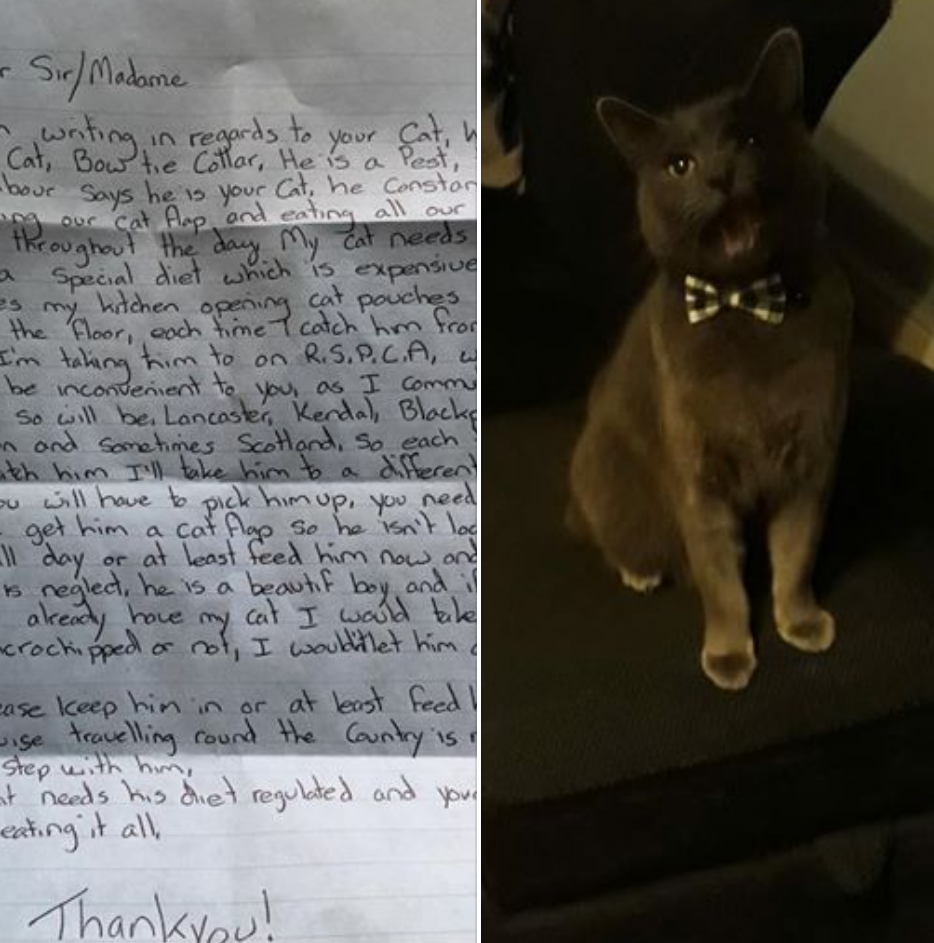 r Sir/Madame
n writing in regards to your Cat, h
Cat, Bow tie Collar, He is a Pest,
bour Says he is your Cat, he Constan
ing our cat flap and eating all our
throughout the day. My cat needs
a Special diet which is expensive
es my kitchen opening cat pouches
the floor, each time I catch him from
I'm taking him to on R.S.P.C.A, w
be inconvenient to you, as I commu
so will be, Lancaster, Kendal, Blackp
n and Sometimes Scotland, So each
tch him I'll take him to a different
ou will have to pick him up, you need
get him a cat flap so he isn't loc
ll day or at least feed him now and
is neglect, he is a beautif boy and if
already have my cat I would take
crochipped or not, I wouldn't let him
ease keep him in or at least feed h
wise travelling round the Country is n
step with him,
at needs his diet regulated and your
eating it all,
Thankyou!